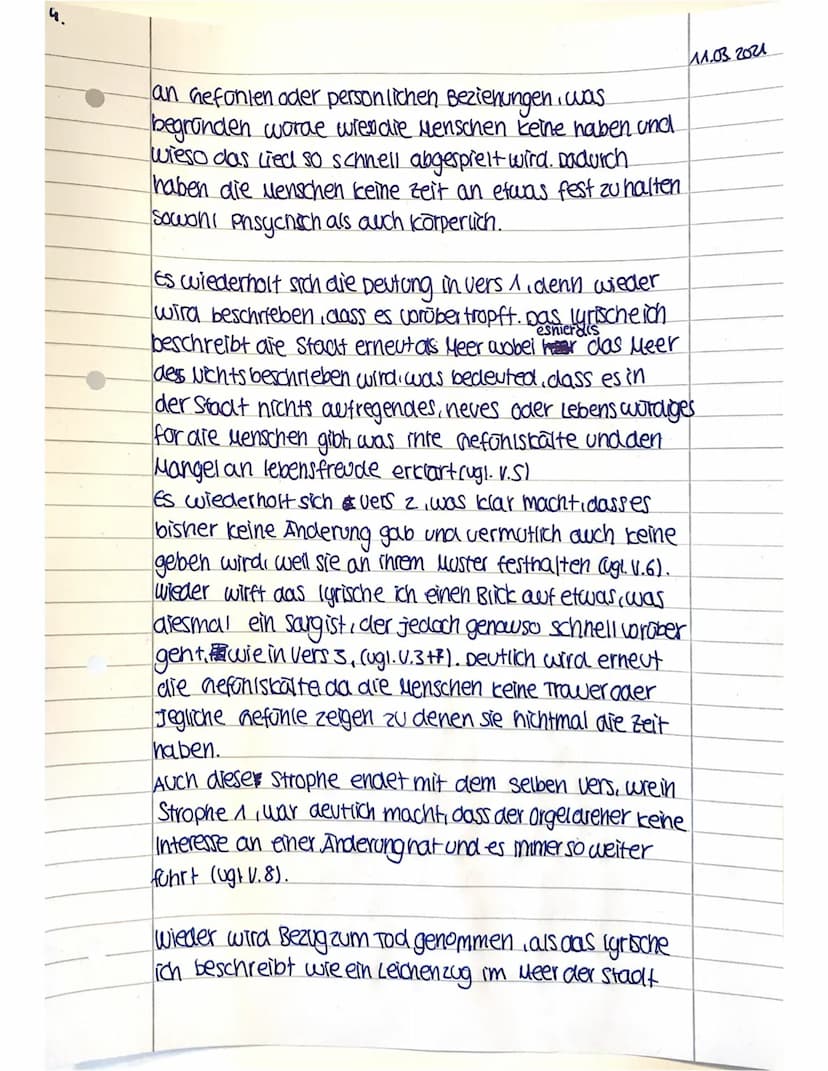 4.
11.03.2021
an Gefühlen oder persönlichen Beziehungen, was
begründen würde wieso die Menschen keine haben und
wieso das Lied so schnell abgespielt wird. Dadurch
haben die Menschen keine Zeit an etwas fest zu halten
sowohl phsychisch als auch körperlich.
Es wiederholt sich die Deutung in Vers 1, denn wieder
wird beschrieben, dass es vorübertropft. Das lyrische ich
beschreibt die Stadt erneut als Meer wobei es hier als das Meer
des Nichts beschrieben wird, was bedeuted, dass es in
der Stadt nichts aufregendes, neues oder Lebenswürdiges
für die Menschen gibt, was ihre Gefühlskälte und den
Mangel an lebensfreude erklärt (vgl. V.5)
Es wiederholt sich Vers 2, was klar macht, dass es
bisher keine Änderung gab und vermutlich auch keine
geben wird, weil sie an ihrem Muster festhalten (vgl. V.6).
Wieder wirft das lyrische ich einen Blick auf etwas, was
diesmal ein Sarg ist, der jedoch genauso schnell vorüber
geht, wie in Vers 3, (vgl. V.3+7). Deutlich wird erneut
die Gefühlskälte da die Menschen keine Trauer oder
Jegliche Gefühle zeigen zu denen sie nichtmal die Zeit
haben.
Auch diese Strophe endet mit dem selben Vers, wie in
Strophe 1, war deutlich macht, dass der Orgeldreher keine
Interesse an einer Änderung hat und es immer so weiter
führt (vgl. V.8).
Wieder wird Bezug zum Tod genommen, als das lyrische
ich beschreibt wie ein Leichenzug im Meer der Stadt